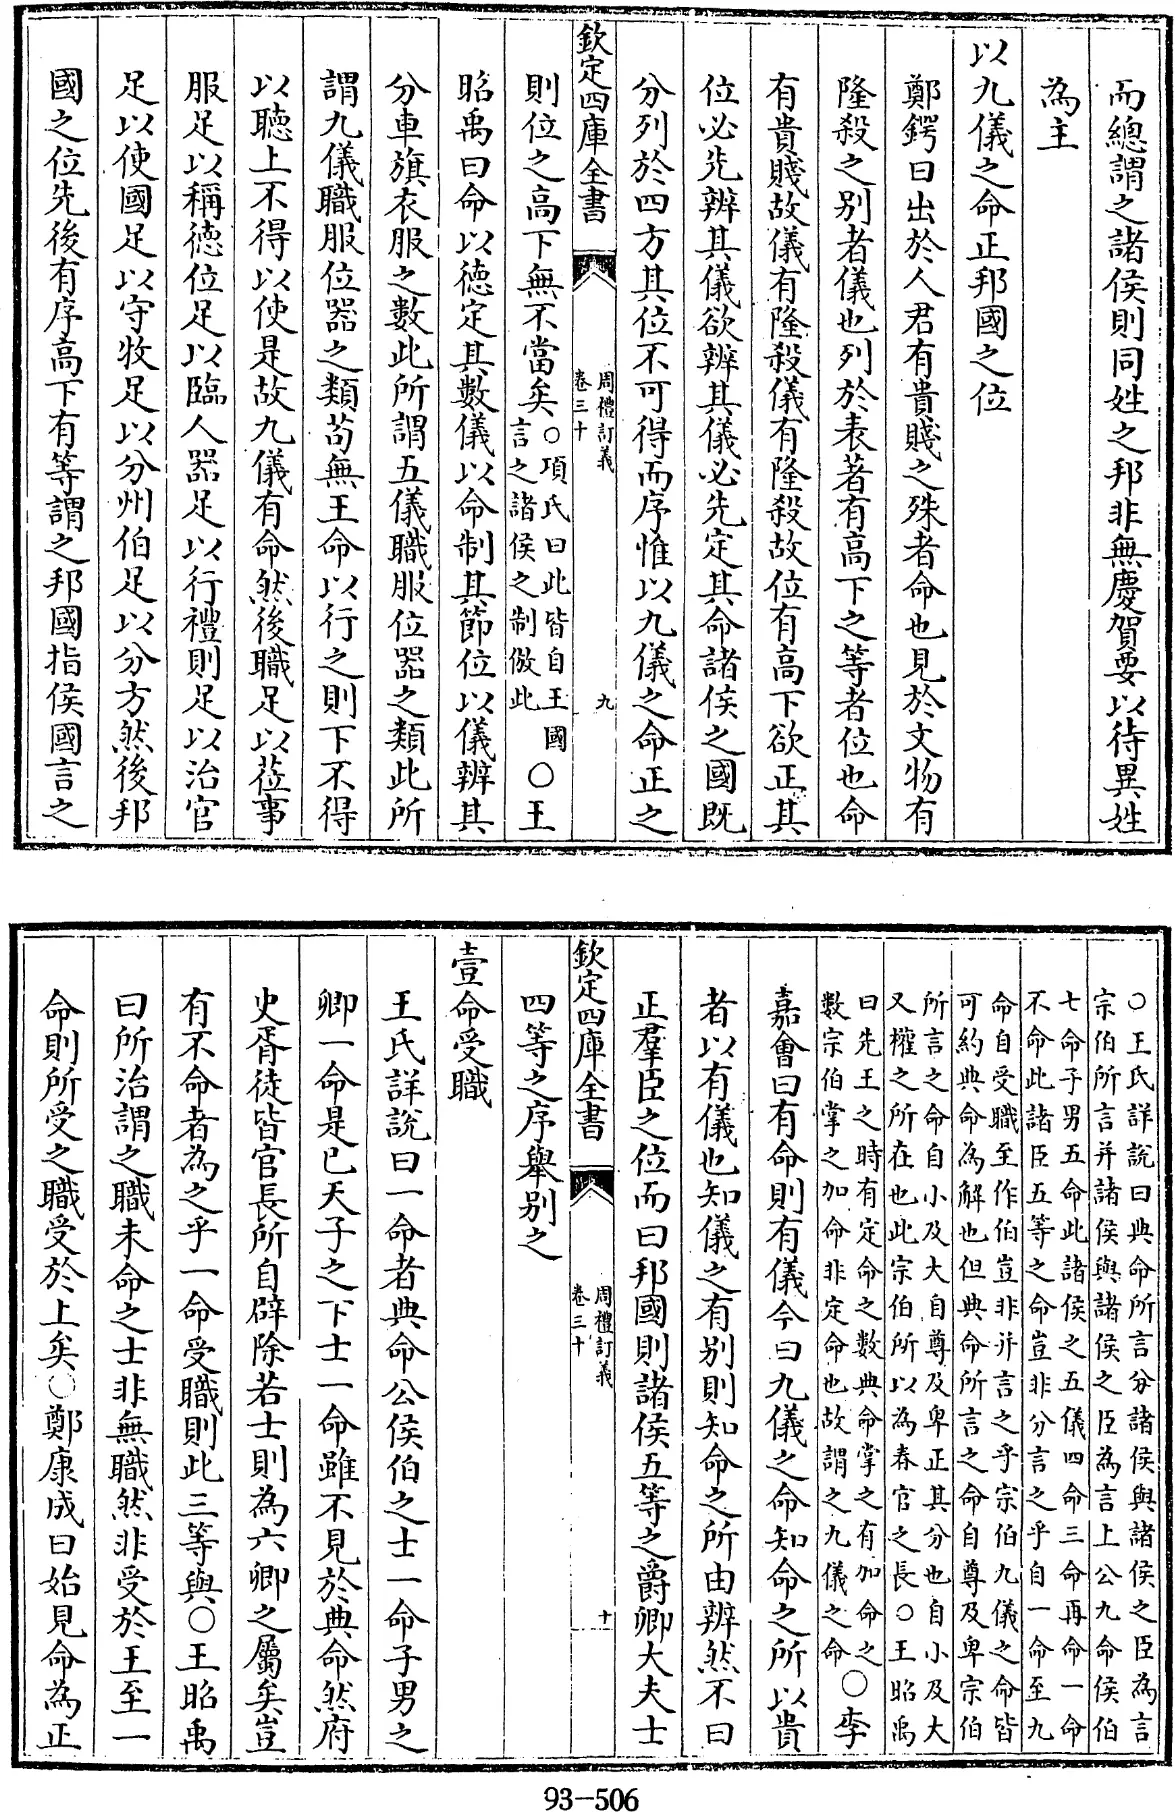 而總謂之諸侯則同姓之邦非無慶賀要以待異姓
為主
以九儀之命正邦國之位
鄭鍔曰出於人君有貴賤之殊者命也見於文物有
隆殺之别者儀也列於表著有高下之等者位也命
有貴賤故儀有隆殺儀有隆殺故位有高下欲正其
位必先辨其儀欲辨其儀必先定其命諸侯之國既
分列於四方其位不可得而序惟以九儀之命正之
欽定四庫全書
周禮訂義
卷三十
九
則位之高下無不當矣○項氏曰此皆自王國
言之諸侯之制倣此○王
昭禹曰命以德定其數儀以命制其節位以儀辨其
分車旗衣服之數此所謂五儀職服位器之類此所
謂九儀職服位器之類苟無王命以行之則下不得
以聽上不得以使是故九儀有命然後職足以莅事
服足以稱德位足以臨人器足以行禮則足以治官
足以使國足以守牧足以分州伯足以分方然後邦
國之位先後有序高下有等謂之邦國指侯國言之
○王氏詳說曰典命所言分諸侯與諸侯之臣為言
宗伯所言并諸侯與諸侯之臣為言上公九命侯伯
七命子男五命此諸侯之五儀四命三命再命一命
不命此諸臣五等之命豈非分言之乎自一命至九
命自受職至作伯豈非并言之乎宗伯九儀之命皆
可約典命為解也但典命所言之命自尊及卑宗伯
所言之命自小及大自尊及卑正其分也自小及大
又權之所在也此宗伯所以為春官之長○王昭禹
曰先王之時有定命之數典命掌之有加命之
數宗伯掌之加命非定命也故謂之九儀之命○李
嘉會曰有命則有儀今曰九儀之命知命之所以貴
者以有儀也知儀之有别則知命之所由辨然不曰
正羣臣之位而曰邦國則諸侯五等之爵卿大夫士
欽定四庫全書
周禮訂義
卷三十
十
四等之序舉别之
壹命受職
王氏詳說曰一命者典命公侯伯之士一命子男之
卿一命是已天子之下士一命雖不見於典命然府
史胥徒皆官長所自辟除若士則為六卿之屬矣豈
有不命者為之乎一命受職則此三等與○王昭禹
曰所治謂之職未命之士非無職然非受於王至一
命則所受之職受於上矣○鄭康成曰始見命為正
93-506